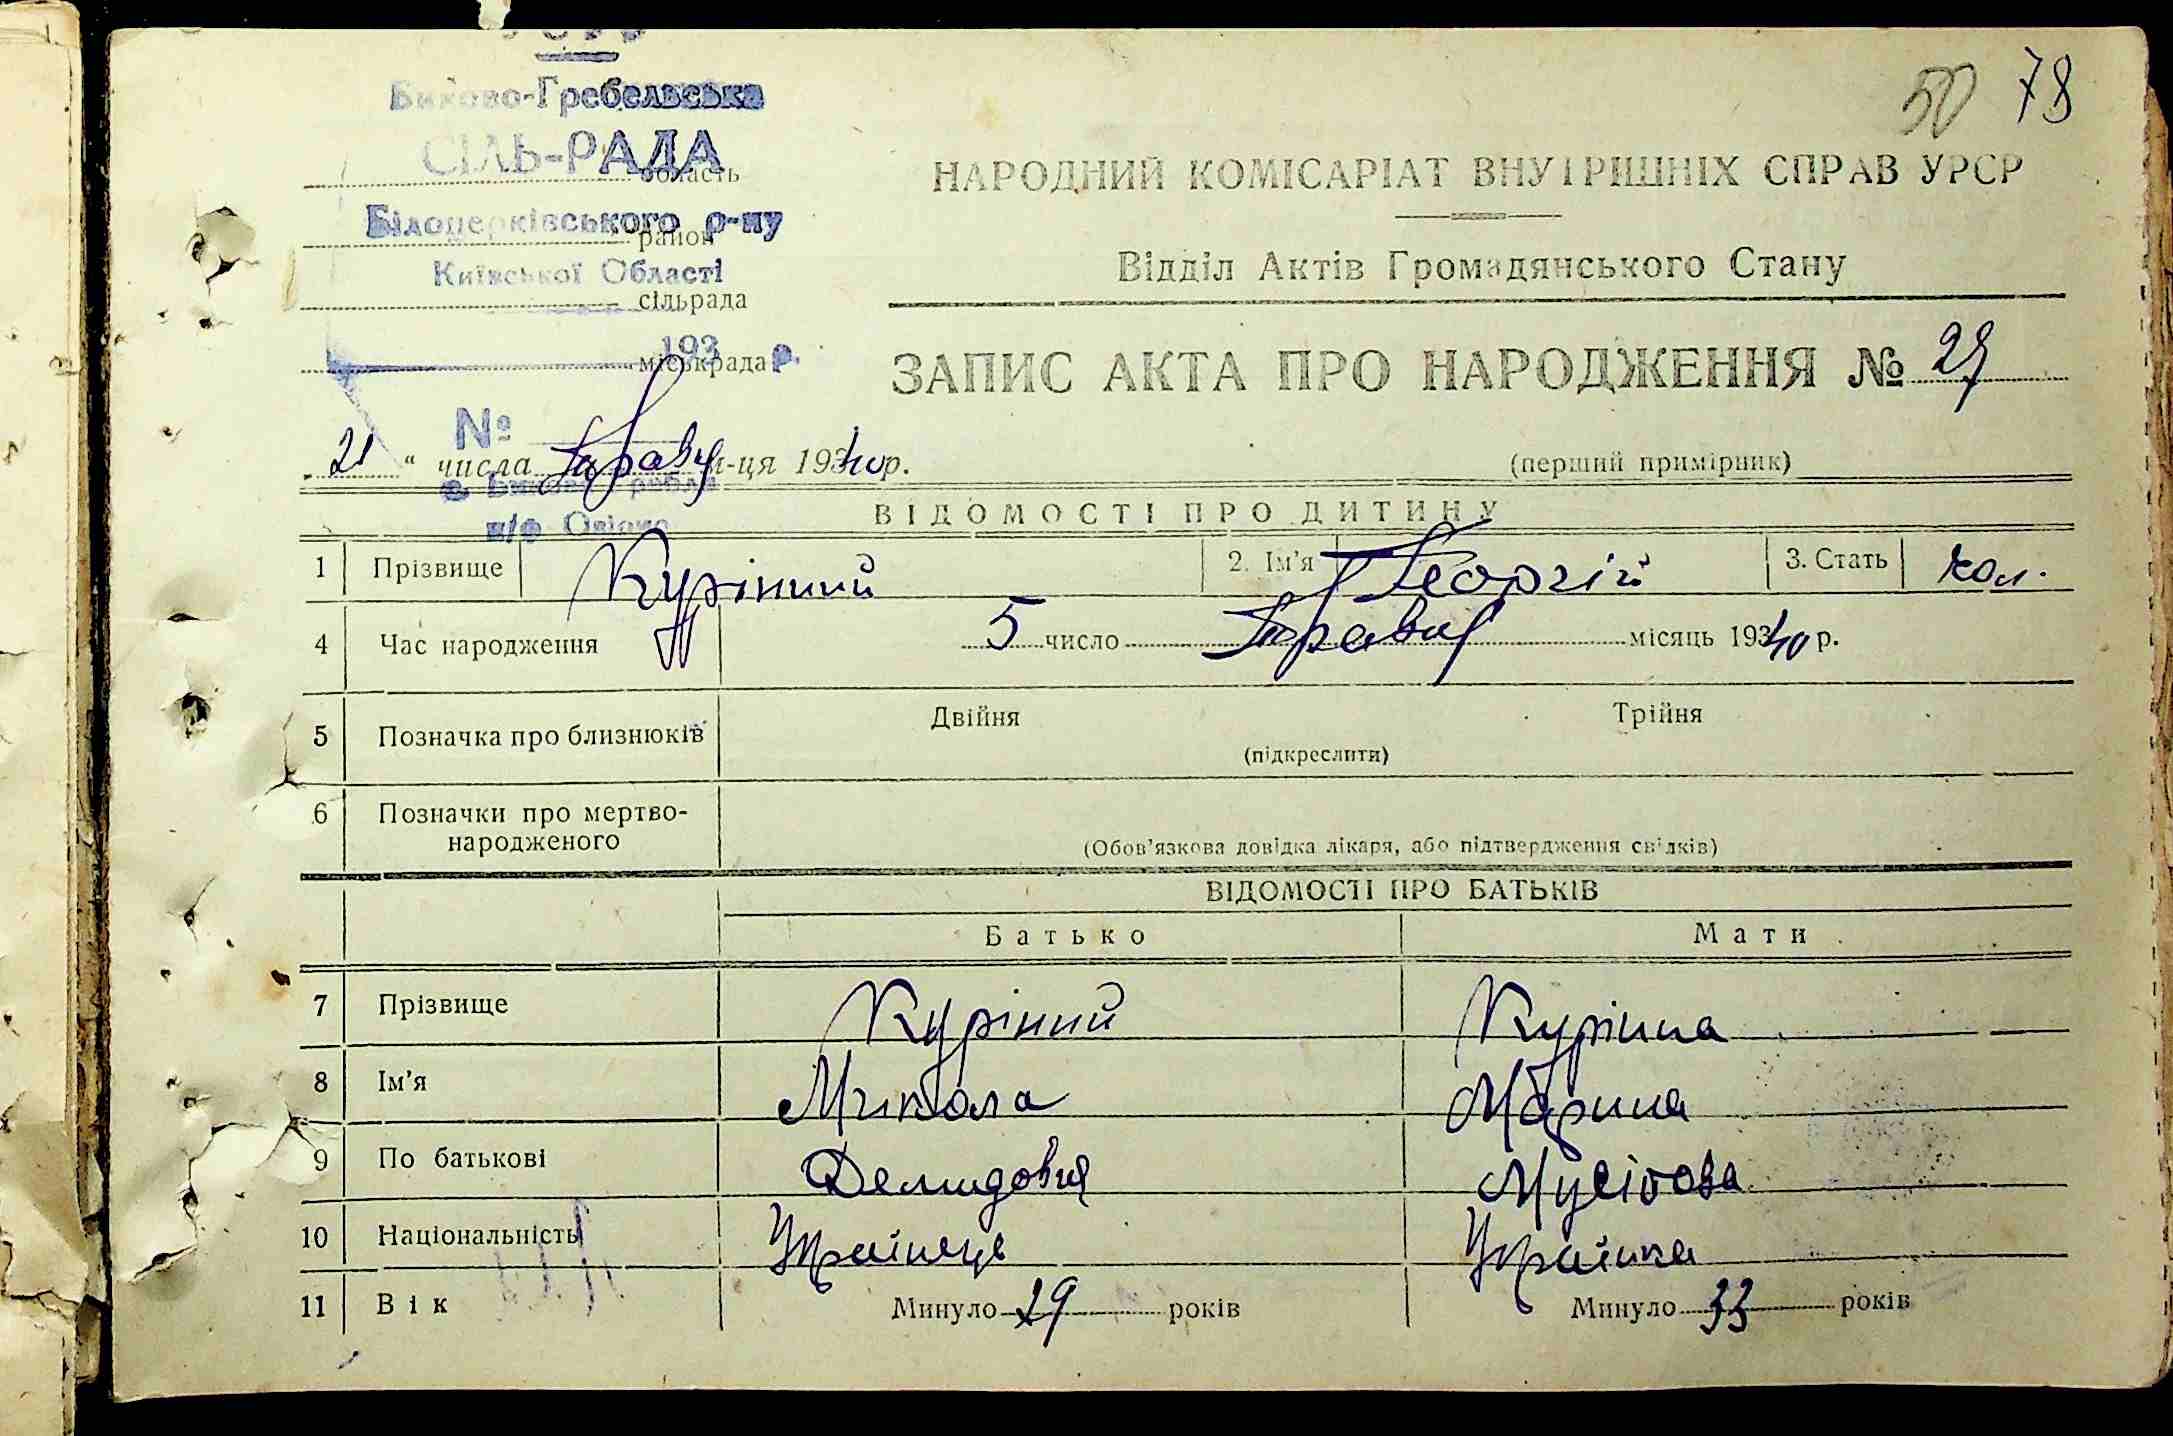 50 78
УСРР
Биково-Гребельська
СІЛЬ-РАДА
область
НАРОДНИЙ КОМІСАРІАТ ВНУТРІШНІХ СПРАВ УРСР
Білоцерківського р-ну
район
Відділ Актів Громадянського Стану
Київської Області
сільрада
193 р.
міськрада
ЗАПИС АКТА ПРО НАРОДЖЕННЯ №
№
„21“ числа Травня м-ця 1940 р.
(перший примірник)
с. Бикова Гребля
п/о
ВІДОМОСТІ ПРО ДИТИНУ
1 Прізвище Курінний 2. Ім'я Георгій 3. Стать чол.
4 Час народження 5 число Травня місяць 1940 р.
5 Позначка про близнюків Двійня Трійня
(підкреслити)
6 Позначки про мертво-
народженого
(Обов'язкова довідка лікаря, або підтвердження свідків)
ВІДОМОСТІ ПРО БАТЬКІВ
Батько Мати
7 Прізвище Курінний Курінна
8 Ім'я Микола Марина
9 По батькові Демидович Мусіовна
10 Національність Українець Українка
11 Вік Минуло 29 років Минуло 33 років